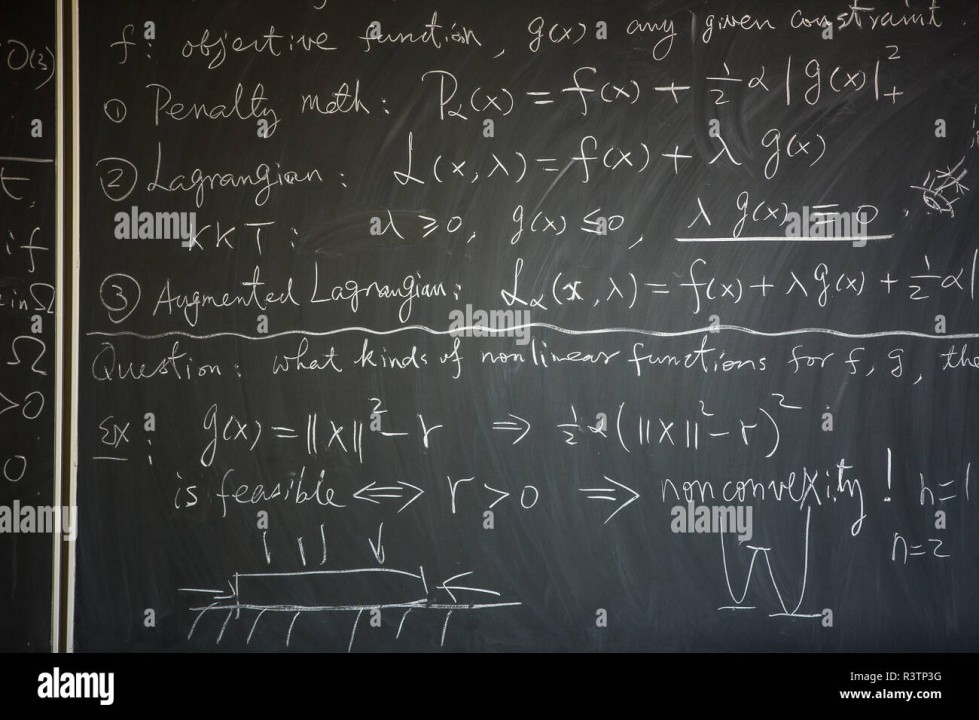 f: objective function, g(x) any given constraint.
① Penalty meth: Pα(x) = f(x) + ½ α |g(x)|₊²
② Lagrangian: L(x, λ) = f(x) + λ g(x)
KKT: λ ⩾ 0, g(x) ≤ 0, λ g(x) = 0.
③ Augmented Lagrangian: Lα(x, λ) = f(x) + λg(x) + ½ α|
Question: what kinds of nonlinear functions for f, g, the
Ex: g(x) = ||x||² - r ⇒ ½ α(||x||² - r)²
is feasible ⟺ r > 0 ⇒ nonconvexity! n=1
n=2
O(3)
if
in Ω
Ω
>0
0
alamy
Image ID: R3TP3G
www.alamy.com